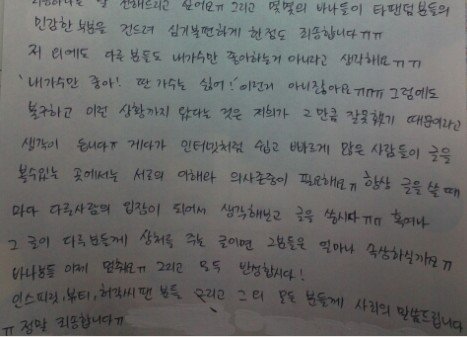 말 전해드리고 싶어요ㅠ 그리고 몇몇의 바나들이 타팬덤분들의
민감한 부분을 건드려 심기불편하게 한점도 죄송합니다ㅠㅠ
저 외에도 다른 분들도 내가수만 좋아하는게 아니라고 생각해요ㅠㅠ
'내가수만 좋아! 딴 가수는 싫어!' 이런게 아니잖아요ㅠㅠㅠ 그럼에도
불구하고 이런 상황까지 왔다는 것은 저희가 그만큼 잘못했기 때문이라고
생각이 듭니다ㅠ 게다가 인터넷처럼 쉽고 빠르게 많은 사람들이 글을
볼수있는 곳에서는 서로의 이해와 의사존중이 필요해요ㅠ 항상 글을 쓸 때
마다 다른사람의 입장이 되어서 생각해보고 글을 씁시다ㅠㅠ 혹여나
그 글이 다른분들께 상처를 주는 글이면 그분들은 얼마나 속상하실까요ㅠ
바나분들 이제 멈춰요ㅠ 그리고 모두 반성합시다!
인스피릿,뷰티, 허각씨팬 분들 그리고 그 외 모든 분들께 사죄의 말씀드립니다
ㅠ 정말 죄송합니다ㅠ